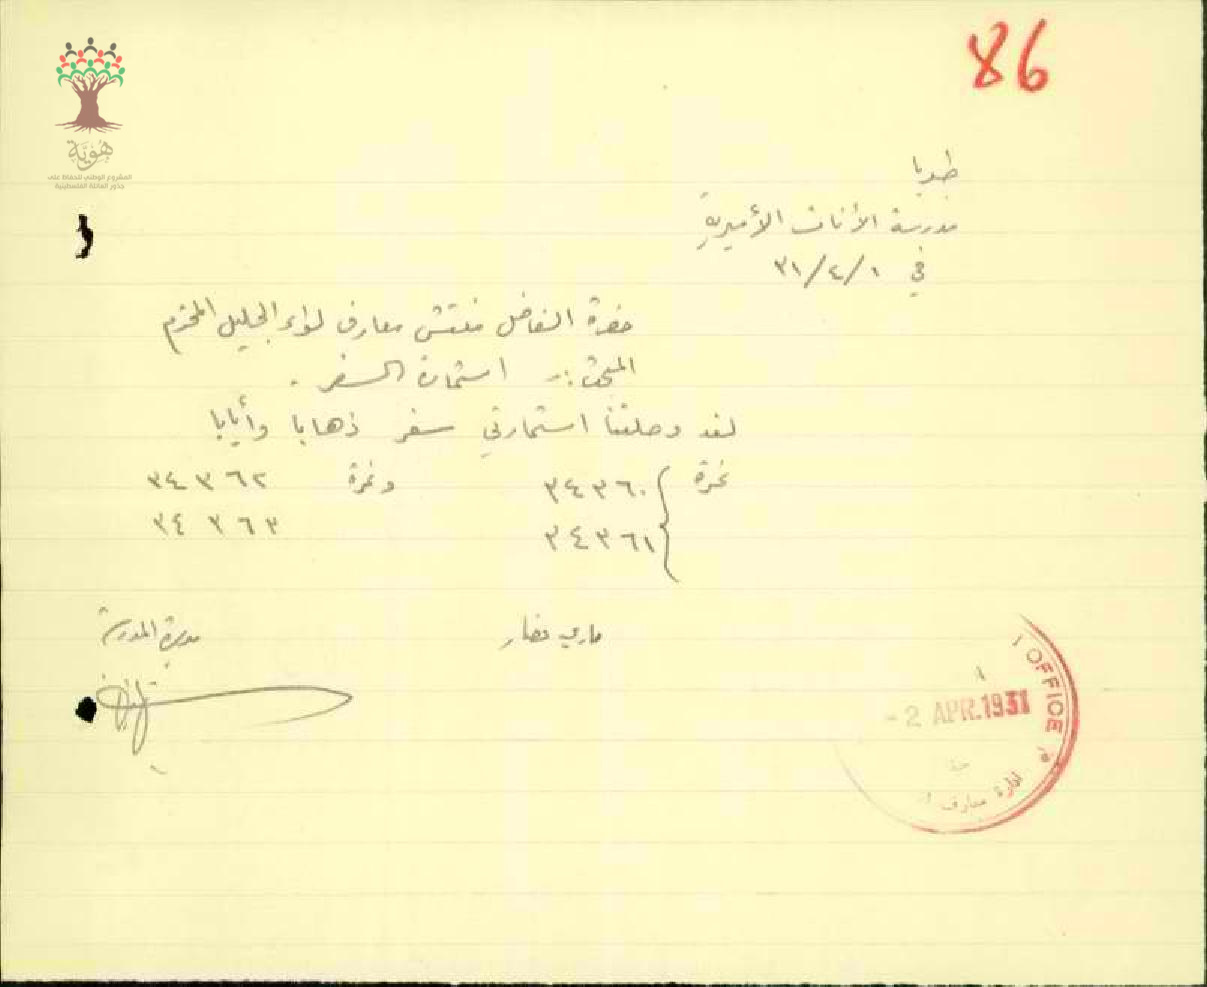 86
هوية
المشروع الوطني للحفاظ على
جذور العائلة الفلسطينية
طبريا
مدرسة الأناث الأميرية
في ١/٤/٣١
حضرة الفاضل مفتش معارف لواء الجليل المحترم
المبحث :- استمارة السفر .
لقد وصلتنا استمارتي سفر ذهابا وأيابا
نمرة ٣٤٣٦٠ ونمرة ٣٤٣٦٢
٣٤٣٦١ ٣٤٣٦٣
ماري مديرة المدرسة
OFFICE
- 2 APR.1931
ادارة معارف